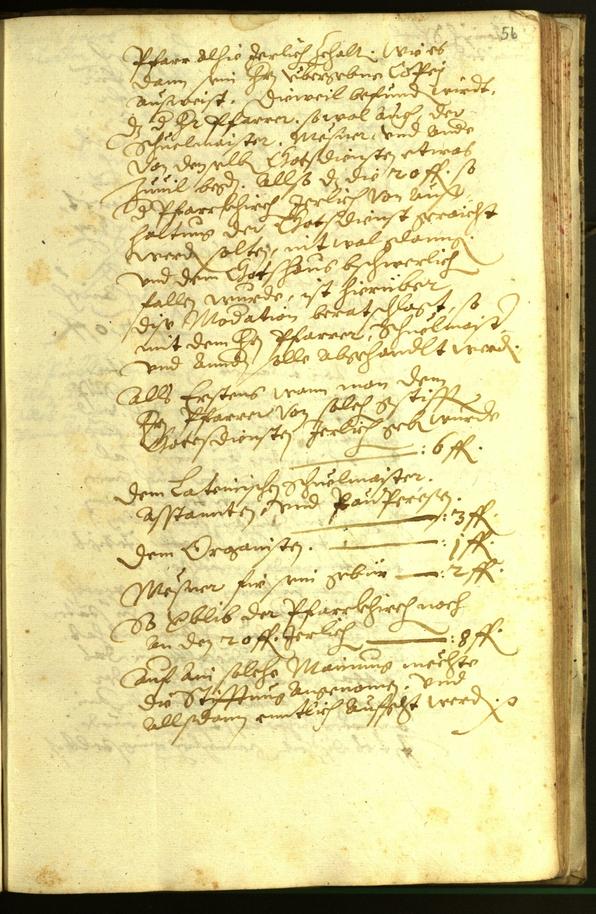 56
Pfarr alhie Jerlich zhalt. Wie es
dann ein h: vbergebne Copej
ausweist. Dieweil befund wirdt,
dz d hr Pfarrer, so wol auch der
Schuelmaister, Mesner vnd ande
von denselb Gotsdiensten etwas
zuuil beg. Also dz die 20 ff. so
d Pfarrkhirch Jerlich von aus
haltung der Gotsdienst geraicht
werd solten, nit wol
vnd dem Gotshaus bschwerlich
fallen wurde, ist hierüber
dise Modation beratschlagt, so
mit dem hr Pfarrer, Schuelmaist
vnd Annd solle abgehandlt werd.
Alls Erstens wann man dem
hr Pfarrer von solch gestifft
Gottsdiensten Jerlich geb wurde
: 6 ff.
dem Lateinischen Schuelmaister.
Asstannten, vnd Pauperes. : 3 ff.
dem Organisten. : 1 ff.
Mesner für sein gebür : 2 ff.
So verblib der Pfarrkhirch noch
an den 20 ff. Jerlich : 8 ff.
Auf ain solche Mainung mechte
die Stifftung angenomen, vnd
allsdann enntlich aufgericht werd.